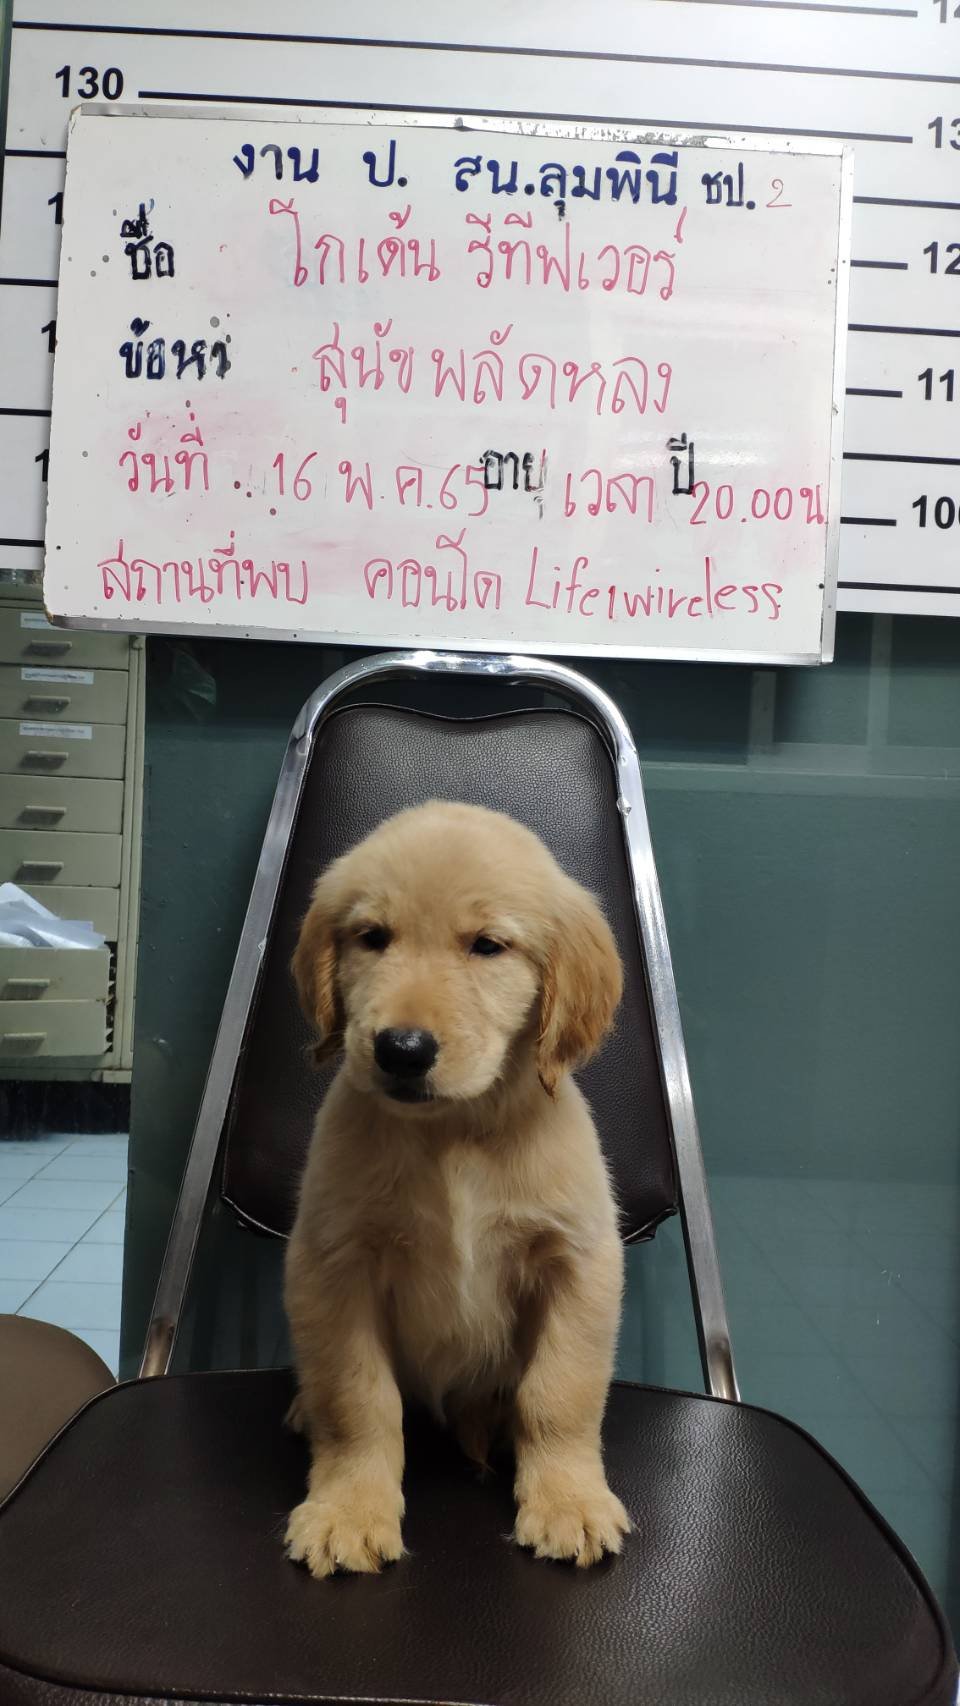 130
งาน ป. สน.ลุมพินี ชป. 2
ชื่อ โกเด้น รีทีฟเวอร์
ข้อหา สุนัขพลัดหลง
วันที่ 16 พ.ค.65 อายุ เวลา ปี 20.00น.
สถานที่พบ คอนโด Life1wireless
100